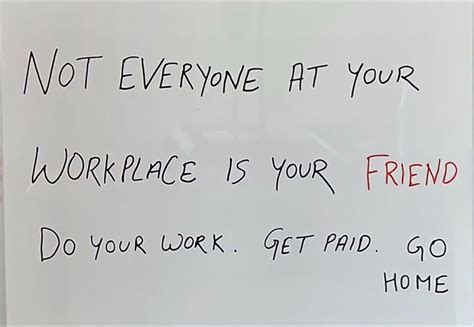 NOT EVERYONE AT YOUR
WORKPLACE IS YOUR FRIEND
DO YOUR WORK. GET PAID. GO
HOME